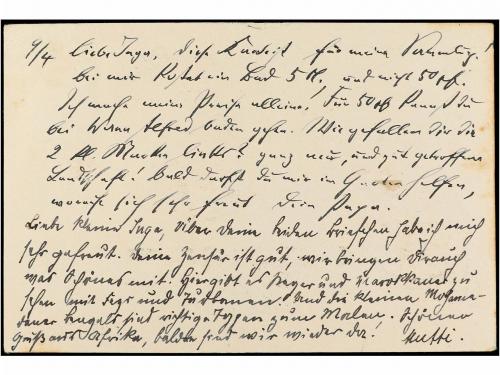 9/4 Liebe Inga, diese Karte ist für meine Sammlung!
bei mir kostet ein Bad 5 M, und nicht 50 pf.
Ich mache meine Preise alleine. Für 50 pf kannst du
bei Alfred baden gehn. Wie gefallen dir die
2 kl. Marken links? ganz neu, und gut getroffene
Landschaft! bald darfst du mir im Garten helfen,
worauf sich sehr freut Dein Papa.
Liebe kleine Inga, über deine beiden Briefchen hab ich mich
sehr gefreut. Deine Zensur ist gut, wir bringen dir auch
was Schönes mit. Hier gibt es Neger und Marokkaner zu
sehen mit Fez und Turbanen. Und die kleinen Mohame-
daner Bengels sind richtige Typen zum Malen. Schönen
Gruß aus Afrika, balde sind wir wieder da! Mutti.